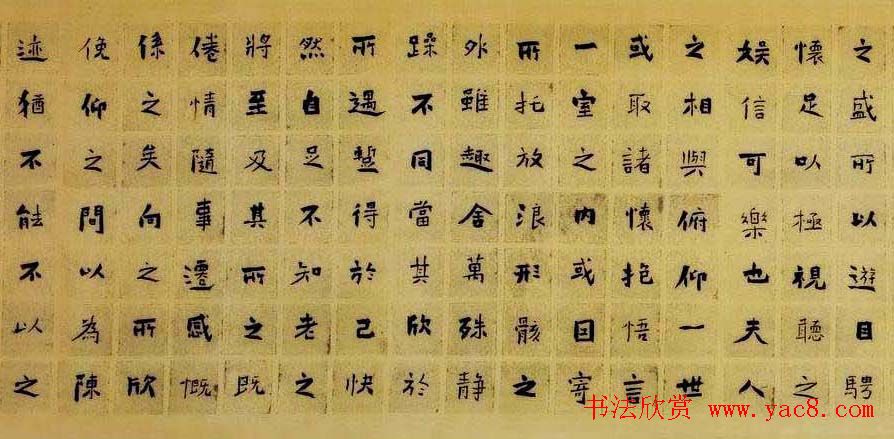 之盛所以遊目騁
懷足以極視聽之
娛信可樂也夫人
之相與俯仰一世
或取諸懷抱悟言
一室之內或因寄
所托放浪形骸之
外雖趣舍萬殊靜
躁不同當其欣於
所遇暫得於己快
然自足不知老之
將至及其所之既
倦情隨事遷感慨
係之矣向之所欣
俛仰之間以為陳
迹猶不能不以之
书法欣赏 www.yac8.com